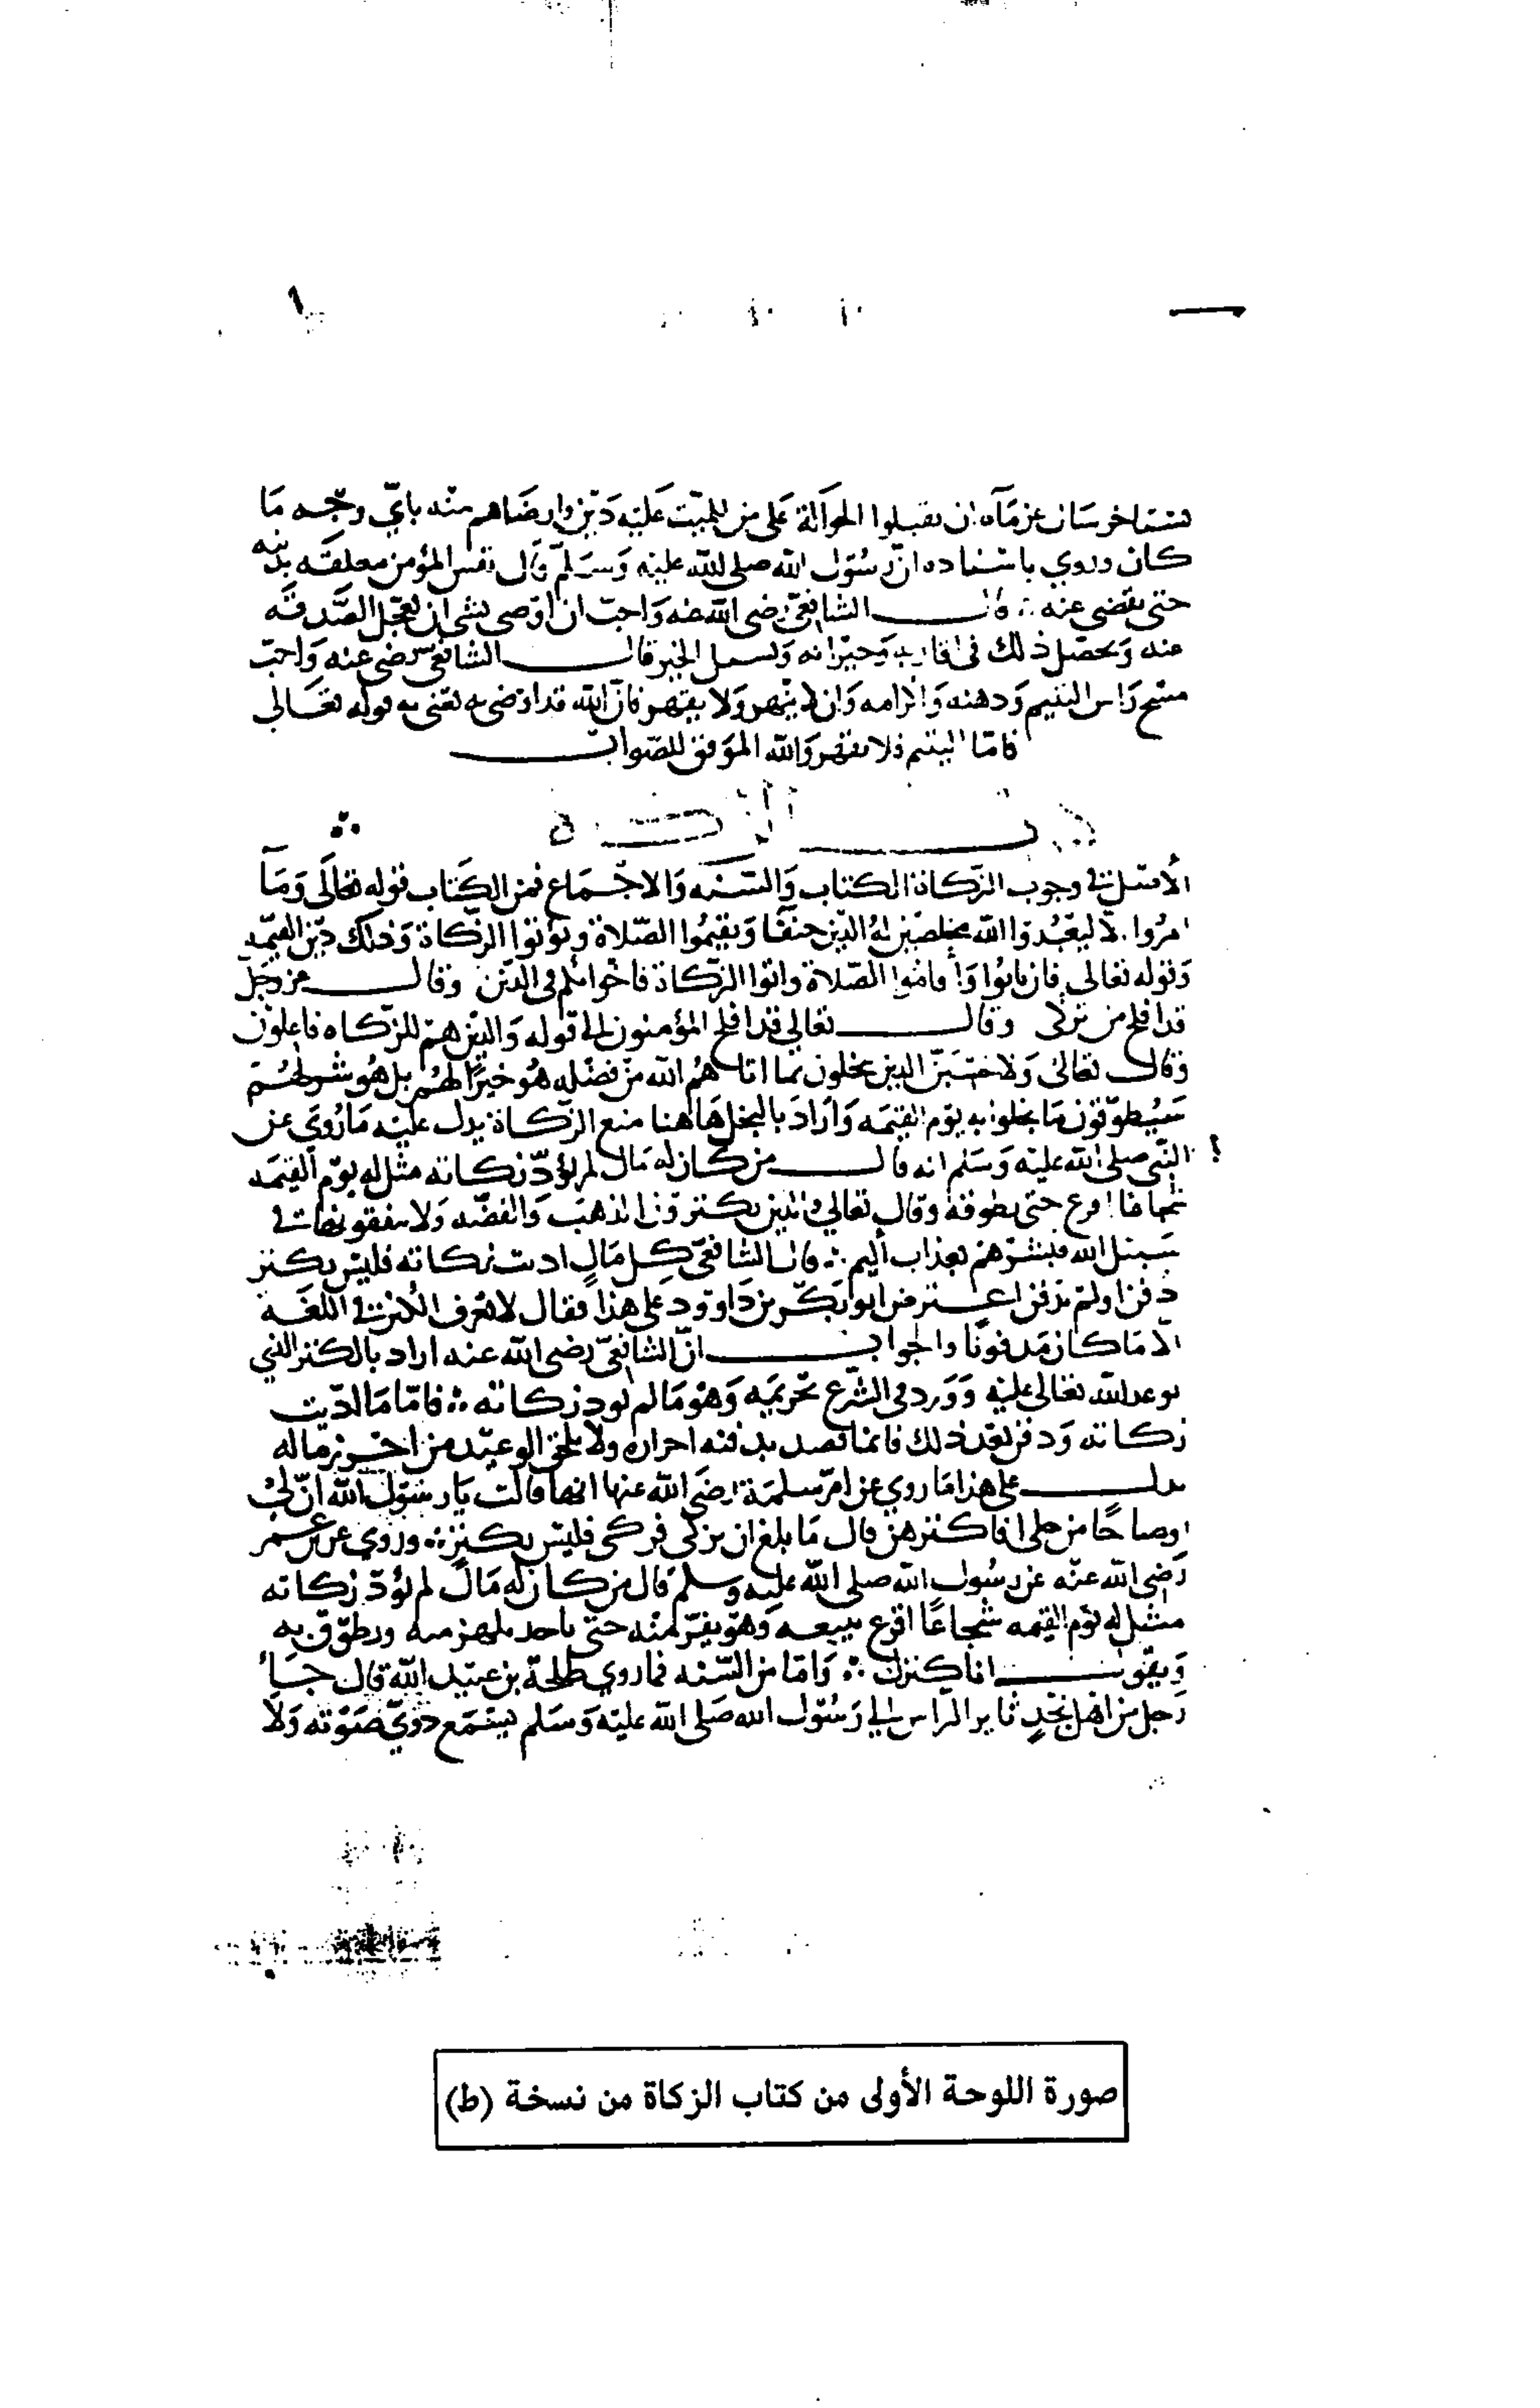 عن ماه ان يقبلوا الحوالة على من للميت عليه دين وارضاهم منه باي وجه ما
كان وروي باسناده ان رسول الله صلى الله عليه وسلم قال نفس المؤمن معلقه بدينه
حتى يقضى عنه الشافعي رضي الله عنه واحب ان اوصى بشي ان يعجل الصدقه
عنه ويحصل ذلك في اقاربه وجيرانه وسبل الخير قال الشافعي رضي عنه واحب
مسح راس اليتيم ودهنه واكرامه وان لا ينهر ولا يقهر فان الله قد اوصى به يعنى به قوله تعالى
فاما اليتيم فلا تقهر والله الموفق للصواب
الاصل في وجوب الزكاة الكتاب والسنه والاجماع فمن الكتاب قوله تعالى وما
امروا الا ليعبدوا الله مخلصين له الدين حنفا ويقيموا الصلاة ويؤتوا الزكاة وذلك دين القيمه
وقوله تعالى فان تابوا واقاموا الصلاة واتوا الزكاة فاخوانكم في الدين وقال عز وجل
قد افلح من تزكى وقال تعالى قد افلح المؤمنون الى قوله والذين هم للزكاه فاعلون
وقال تعالى ولا تحسبن الذين يبخلون بما اتاهم الله من فضله هو خيرا لهم بل هو شر لهم
سيطوقون ما بخلوا به يوم القيمه واراد بالبخل هاهنا منع الزكاة يدل عليه ما روي عن
النبي صلى الله عليه وسلم انه قال من كان له مال لم يؤد زكاته مثل له يوم القيمه
شجاعا اقرع حتى يطوقه وقال تعالى والذين يكنزون الذهب والفضه ولا ينفقونها في
سبيل الله فبشرهم بعذاب اليم قال الشافعي كل مال اديت زكاته فليس بكنز
دفن او لم يدفن اعترض ابو بكر بن داوود على هذا فقال لا نعرف الكنز في اللغه
الا ما كان مدفونا والجواب ان الشافعي رضي الله عنه اراد بالكنز الذي
توعد الله تعالى عليه وورد في الشرع تحريمه وهو ما لم تود زكاته فاما ما اديت
زكاته ودفن بعد ذلك فانما قصد بدفنه احرازه ولا يلحق الوعيد من احرز ماله
يدل على هذا ما روي عن ام سلمة رضي الله عنها انها قالت يا رسول الله ان لي
اوضاحا من حلي افاكنز هن قال ما بلغ ان يزكى فزكي فليس بكنز وروي عن عمر
رضي الله عنه عن رسول الله صلى الله عليه وسلم قال من كان له مال لم يؤد زكاته
مثل له يوم القيمه شجاعا اقرع يتبعه وهو يفر منه حتى ياخذ بلهزمته ويطوق به
ويقول انا كنزك واما من السنه فما روي طلحة بن عبيد الله قال جاء
رجل من اهل نجد ثاير الراس الى رسول الله صلى الله عليه وسلم يسمع دوي صوته ولا
صورة اللوحة الأولى من كتاب الزكاة من نسخة (ط)